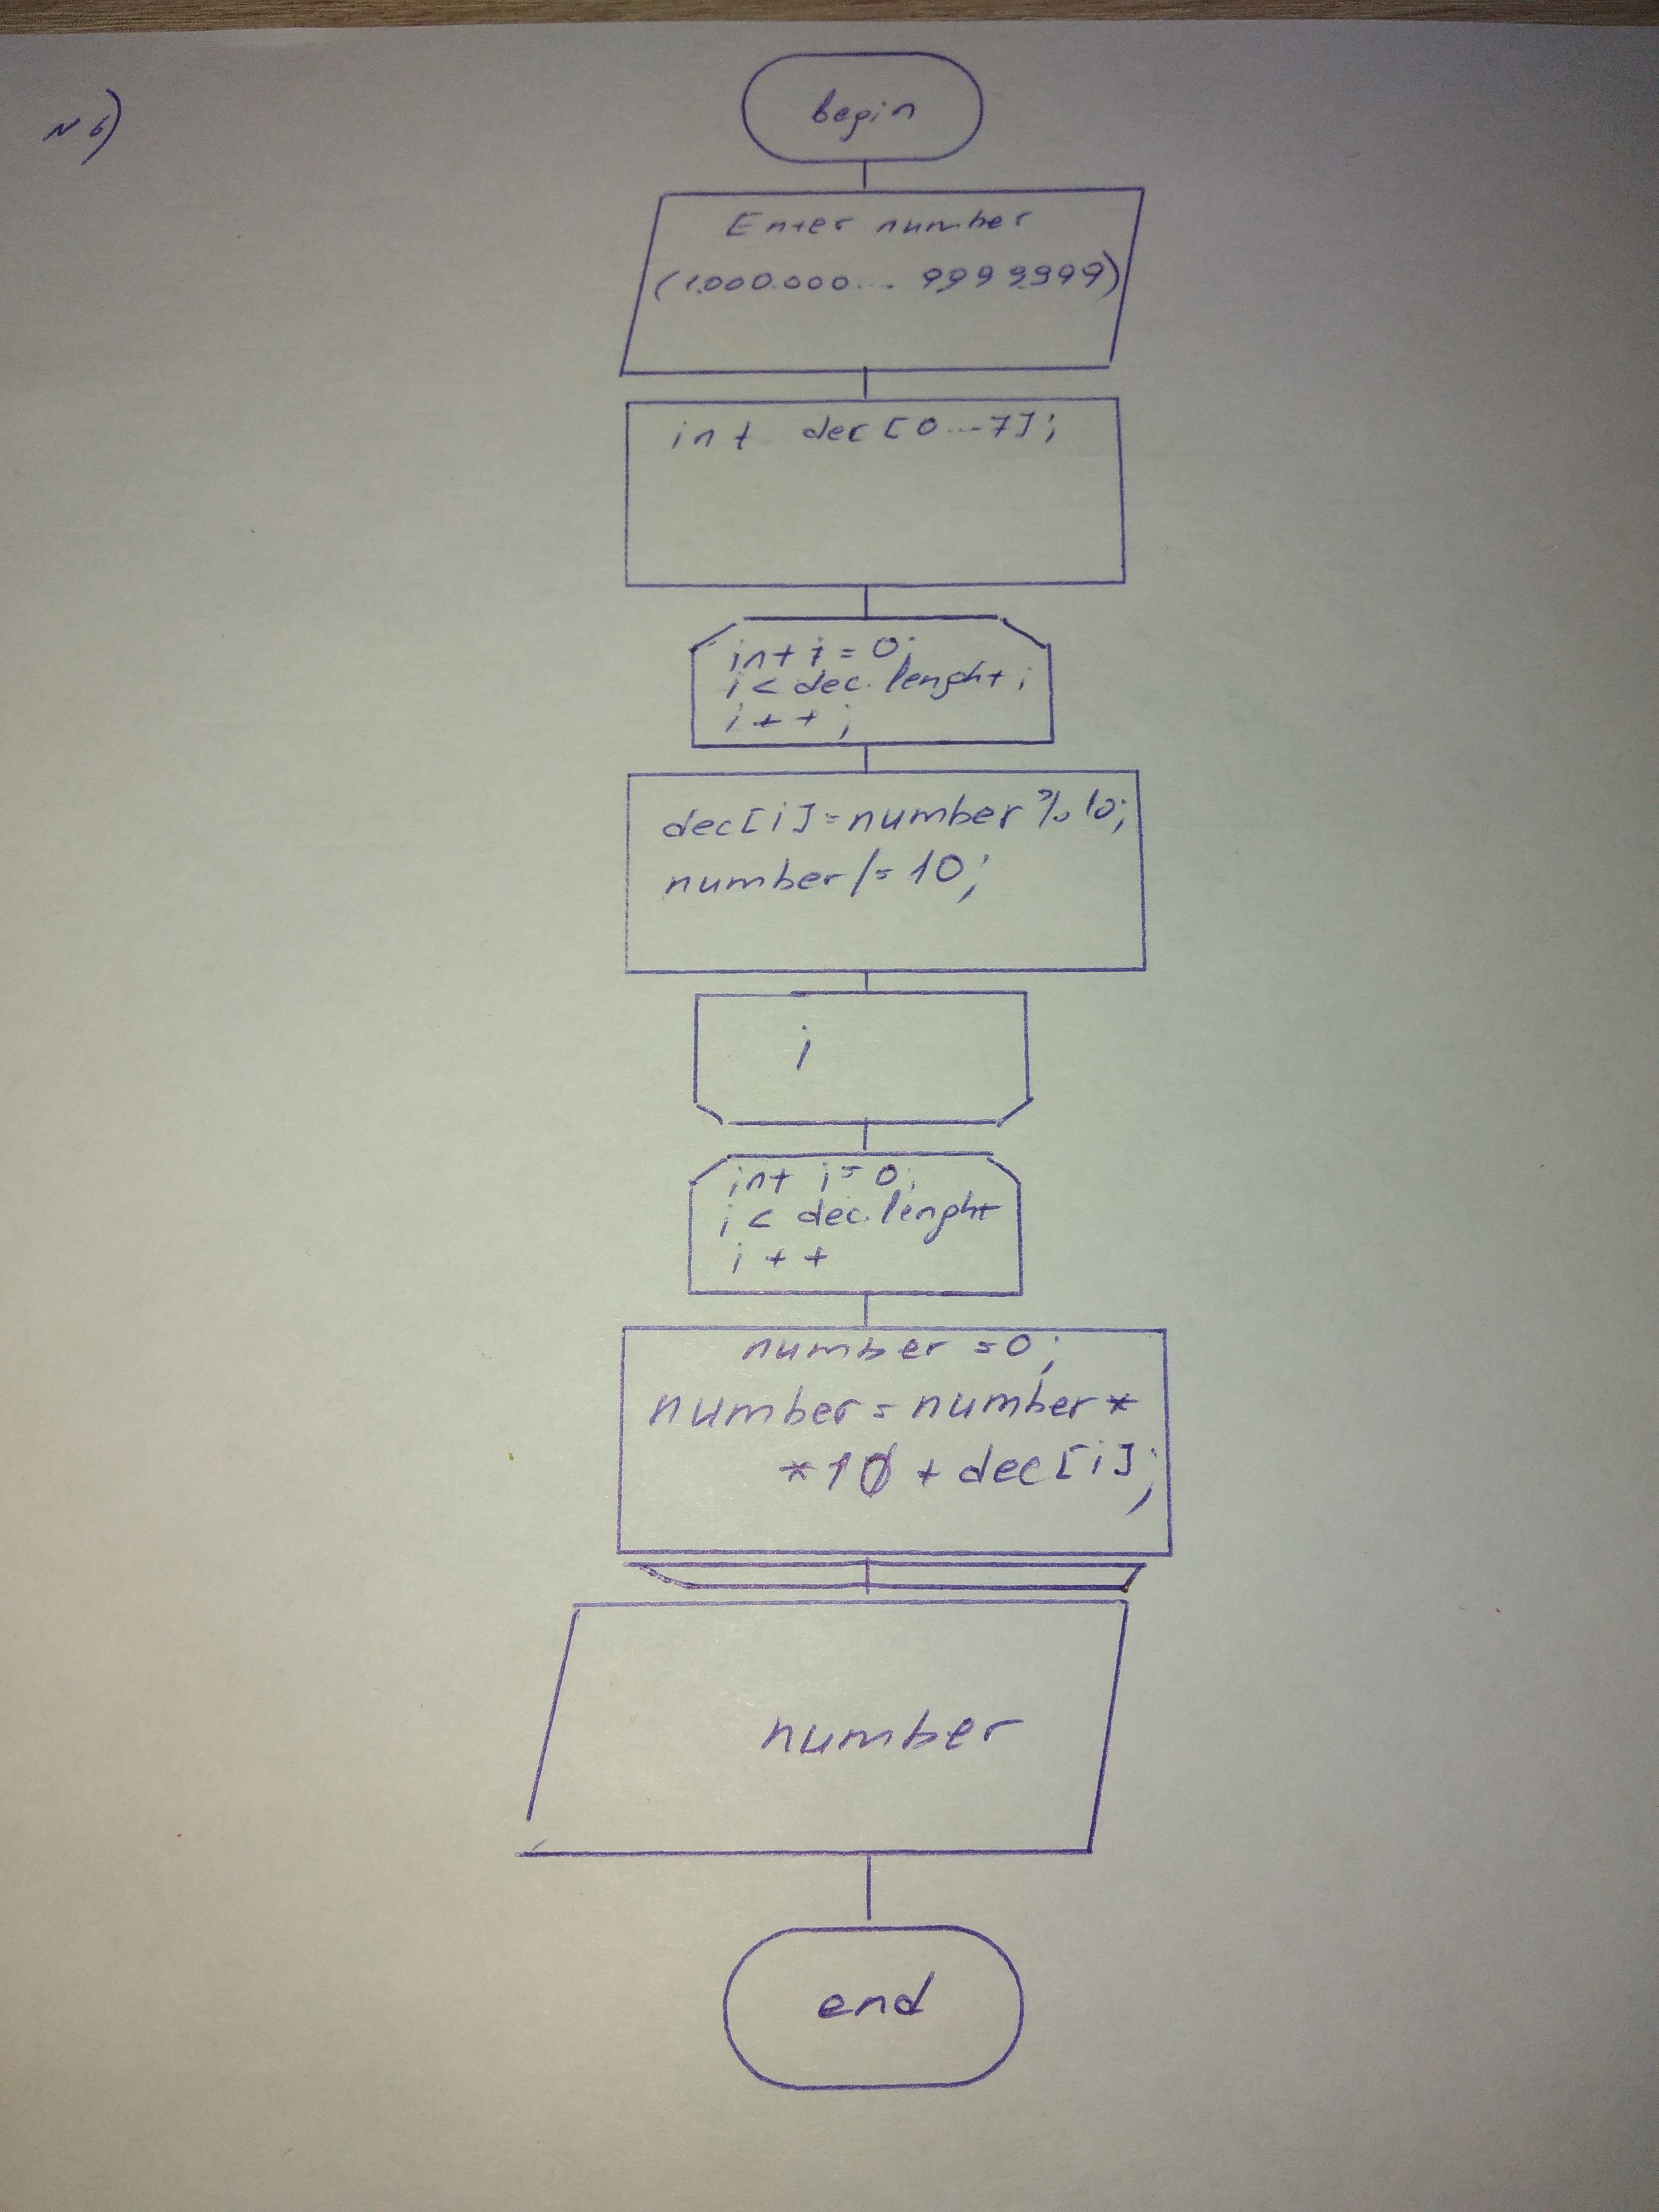 N 6)
begin
Enter number
(1.000.000... 999 9.999)
int dec [0...7];
int i = 0;
i < dec. lenght;
i + + ;
dec[i]=number % 10;
number /= 10;
i
int i = 0;
i < dec. lenght
i + +
number = 0;
number = number *
* 10 + dec[i];
number
end